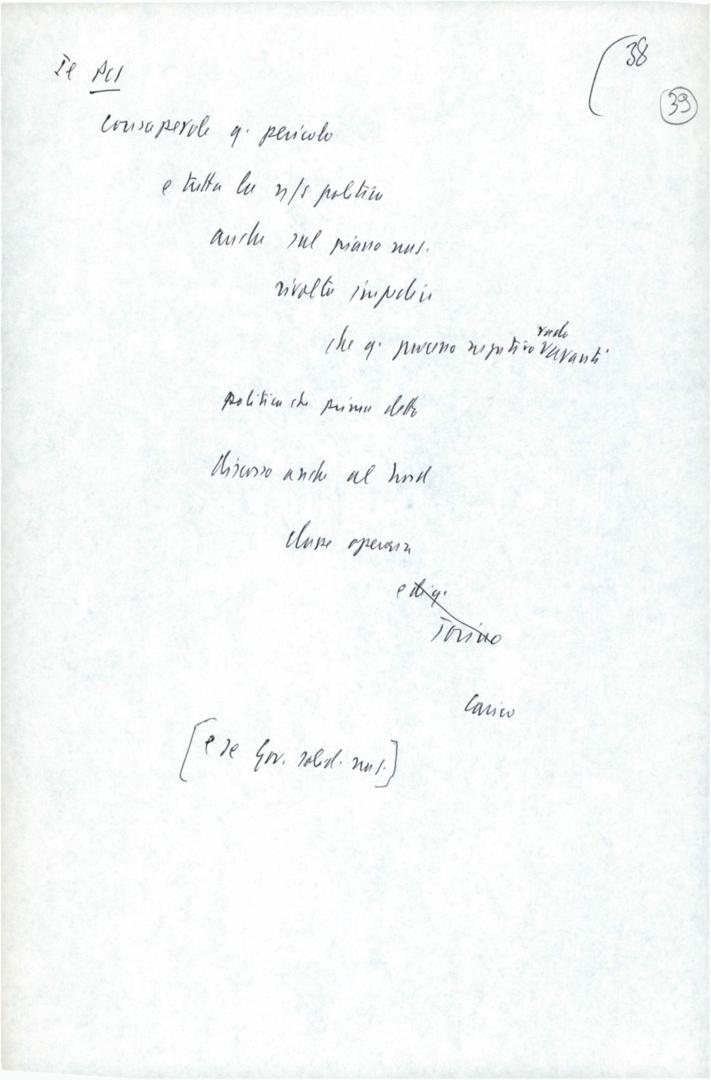 38
39
Il PCI
consapevole q. pericolo
e tutta la n/s politica
anche sul piano naz.
rivolta impedire
che q. processo negativo vada avanti
politica che prima detto
discorso anche al nord
classe operaia
e di q.
Torino
Carico
[e se Gov. solid. naz.]